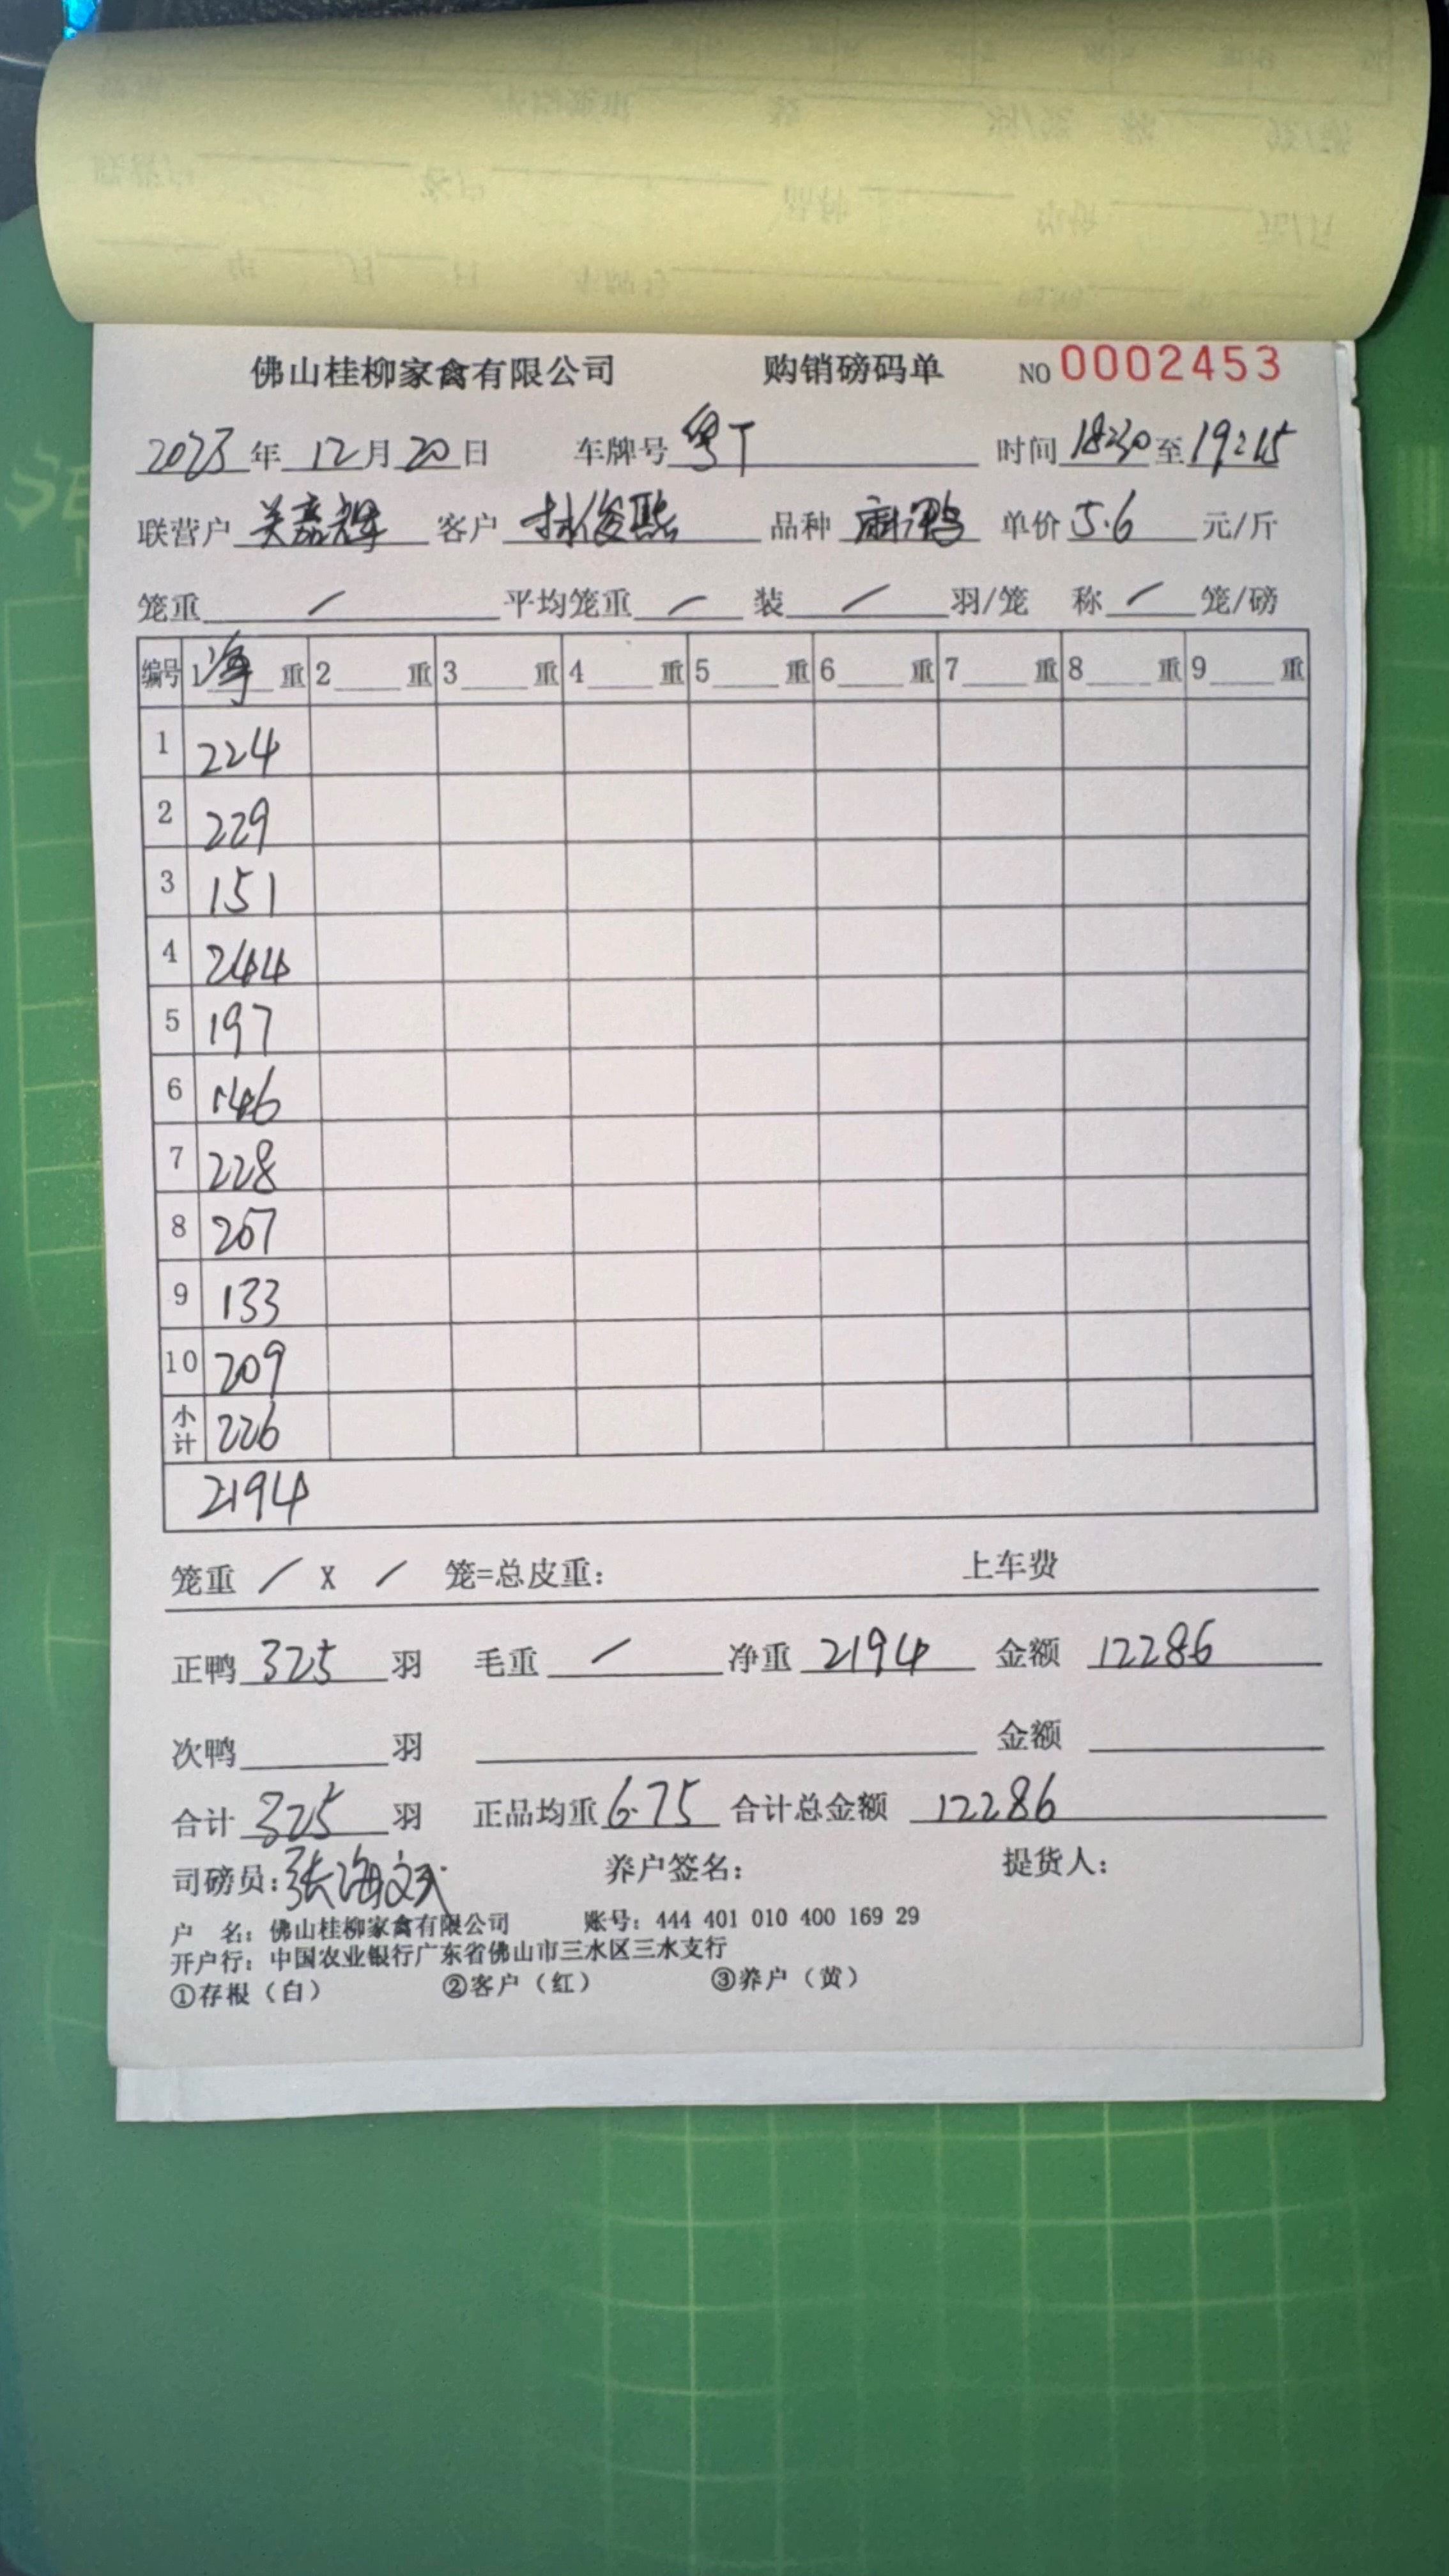 佛山桂柳家禽有限公司 购销磅码单 NO 0002453
2023年12月20日 车牌号 粤T 时间 18:30 至 19:15
联营户 关嘉辉 客户 林俊熙 品种 麻鸭 单价 5.6 元/斤
笼重 / 平均笼重 / 装 / 羽/笼 称 / 笼/磅
编号 1净重 2 重 3 重 4 重 5 重 6 重 7 重 8 重 9 重
1 224
2 229
3 151
4 244
5 197
6 146
7 228
8 207
9 133
10 209
小计 226
2194
笼重 / X / 笼=总皮重: 上车费
正鸭 325 羽 毛重 / 净重 2194 金额 12286
次鸭 羽 金额
合计 325 羽 正品均重 6.75 合计总金额 12286
司磅员:张海 养户签名: 提货人:
户 名: 佛山桂柳家禽有限公司 账号: 444 401 010 400 169 29
开户行: 中国农业银行广东省佛山市三水区三水支行
①存根（白） ②客户（红） ③养户（黄）